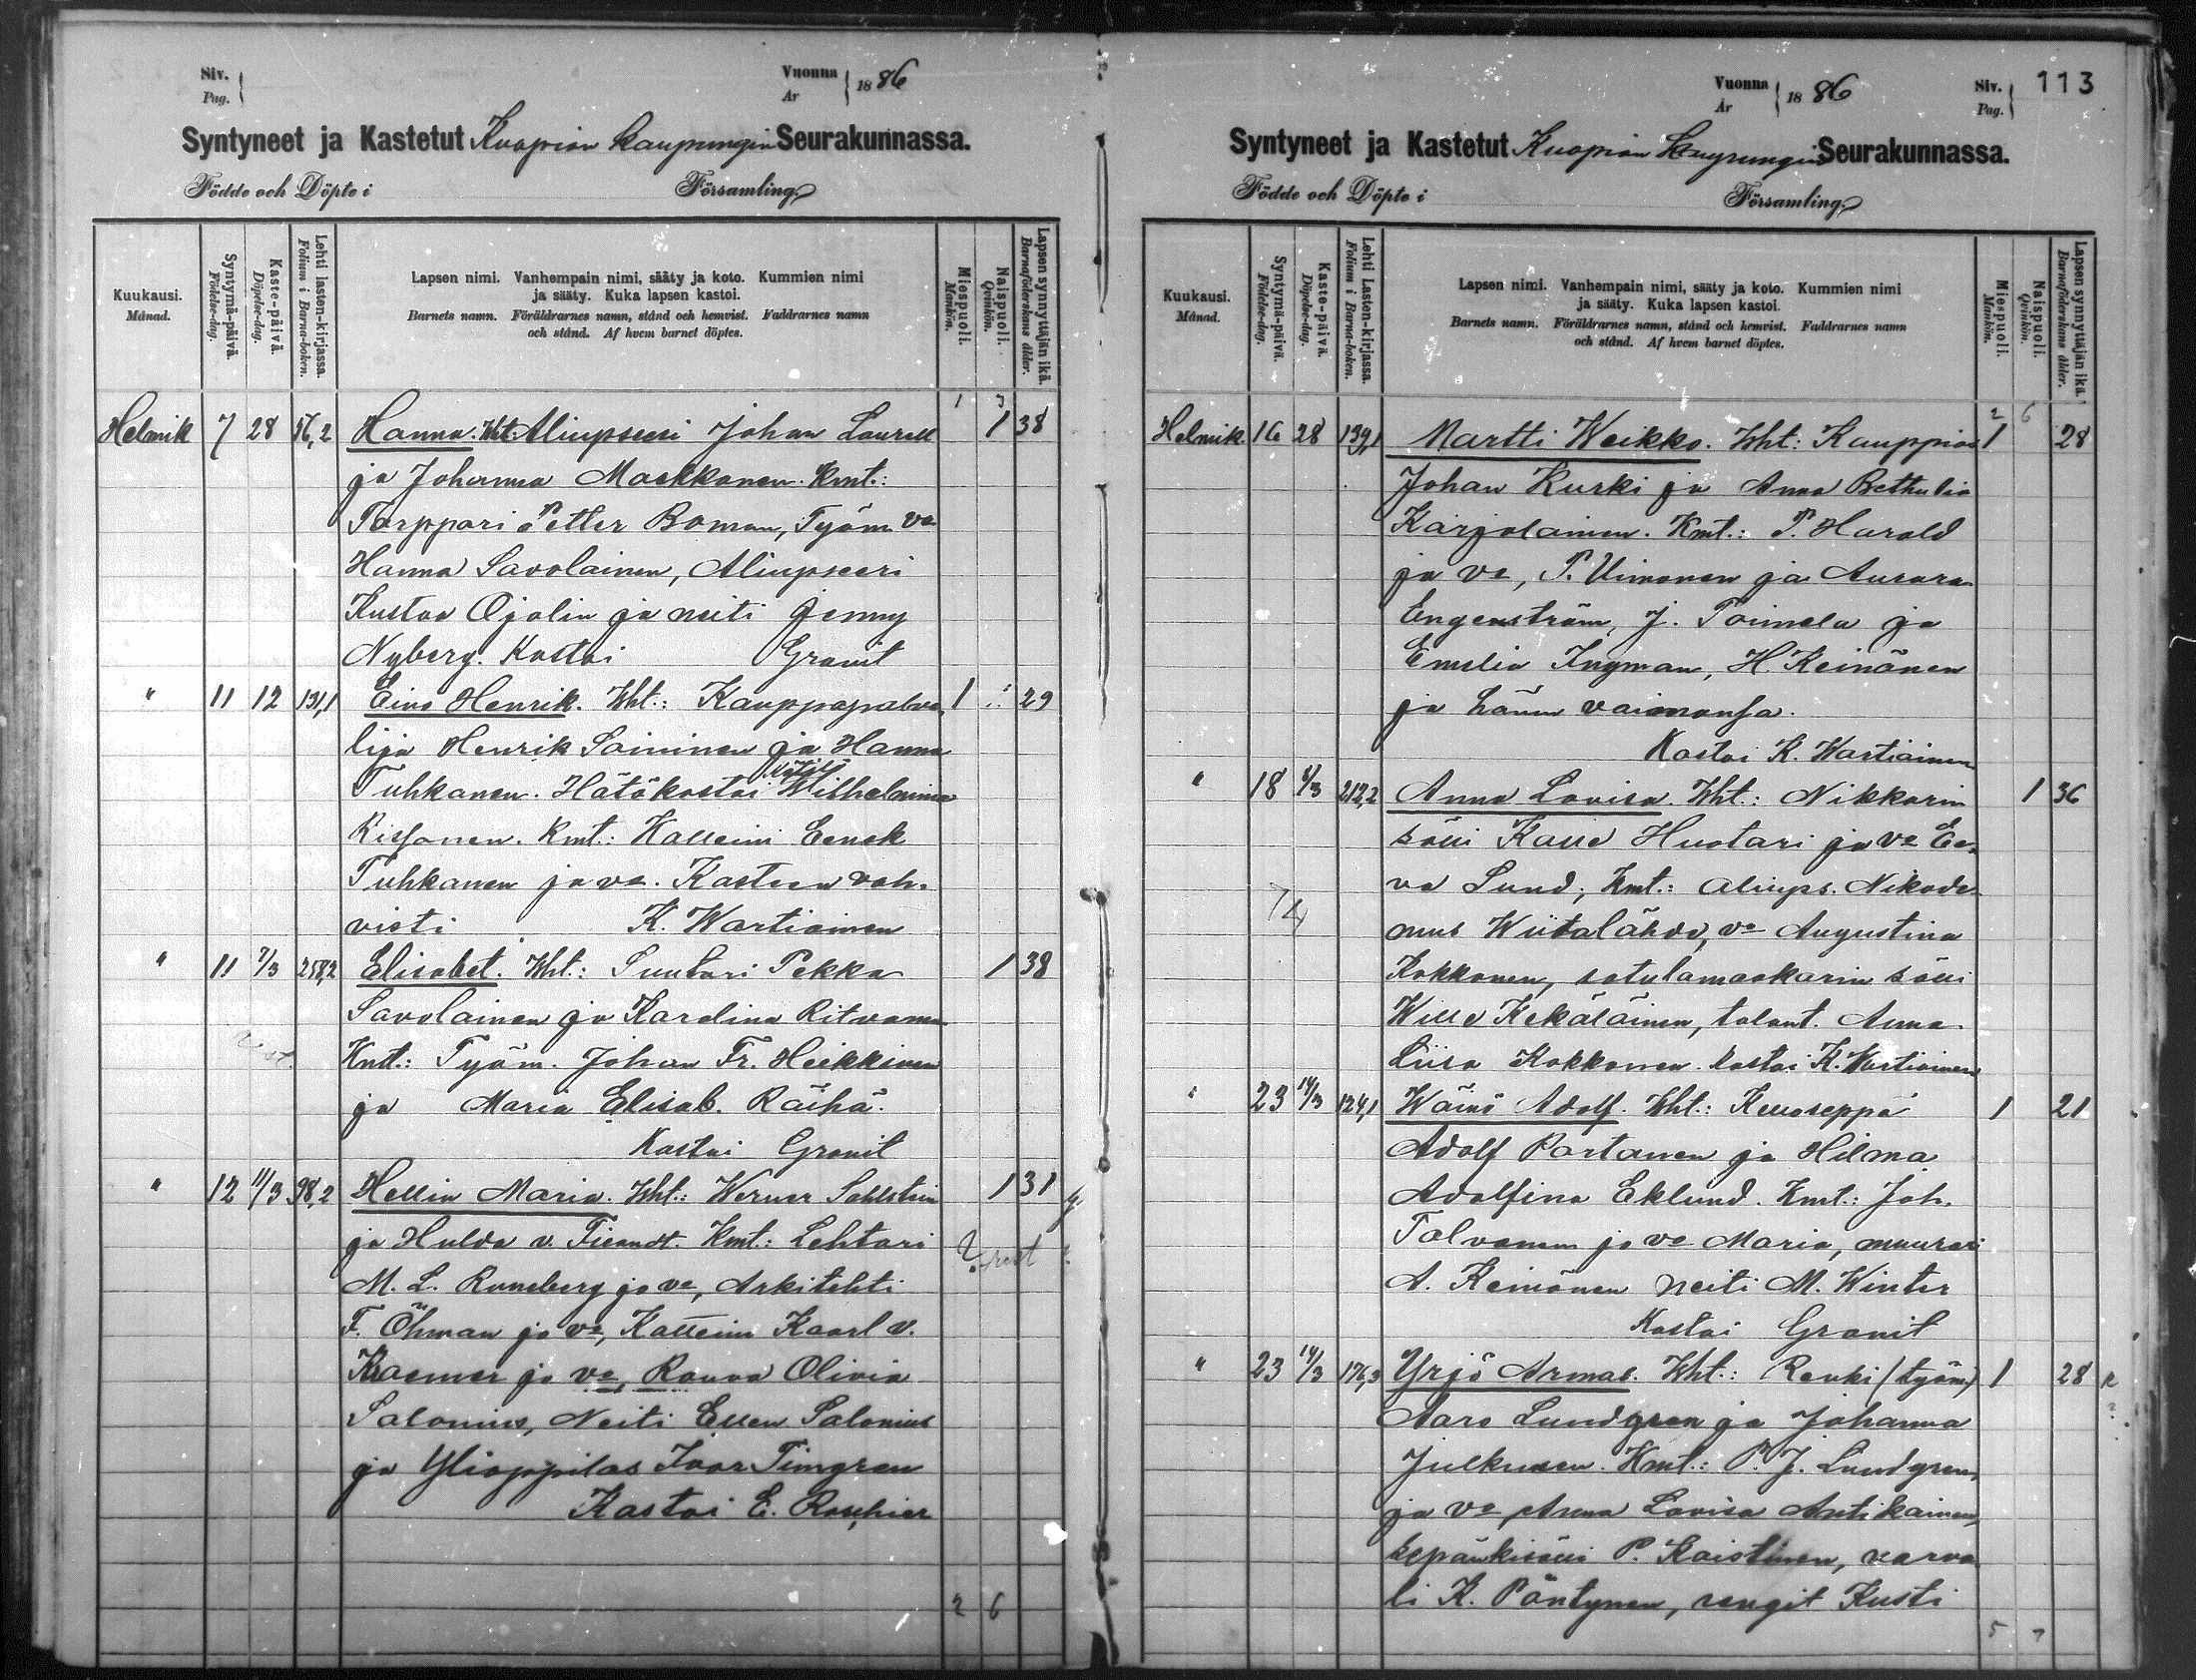 Siv.
Pag.
Vuonna
År
1886
Syntyneet ja Kastetut Kuopion kaupungin Seurakunnassa.
Födde och Döpte i Församling.
Kuukausi.
Månad.
Syntymä-päivä.
Födelse-dag.
Kaste-päivä.
Döpelse-dag.
Lehti lasten-kirjassa.
Folium i Barna-boken.
Lapsen nimi. Vanhempain nimi, sääty ja koto. Kummien nimi
ja sääty. Kuka lapsen kastoi.
Barnets namn. Föräldrarnes namn, stånd och hemvist. Faddrarnes namn
och stånd. Af hvem barnet döptes.
Miespuoli.
Mankön.
Naispuoli.
Qvinkön.
Lapsen synnyttäjän ikä.
Barnaföderskans ålder.
1 3
Helmik 7 28 56,2 Hanna. Wht: Aliupseeri Johan Laurell 1 38
ja Johanna Markkanen. Kmt.:
Torppari Petter Boman, Työm. va
Hanna Savolainen, Aliupseeri
Kustaa Ojolin ja neiti Jenny
Nyberg. Kastoi Granit
" 11 12 131,1 Eino Henrik. Wht.: Kauppapalve- 1 29
lija Henrik Soininen ja Hanna
Tuhkanen. Hätäkastoi kätilö Wilhelmina
Rissanen. Kmt.: Kalleini Eenok
Tuhkanen ja va. Kasteen vah-
visti K. Wartiainen
" 11 7/3 258,2 Elisabet. Wht.: Suutari Pekka 1 38
Savolainen ja Karolina Ritvanen
Kmt.: Työm. Johan Fr. Heikkinen
ja Maria Elisab. Räihä.
Kastoi Granit
" 12 11/3 98,2 Hellin Maria. Wht.: Werner Sahlstein 1 31
ja Hulda v. Fieandt. Kmt.: Lehtori
M. L. Runeberg ja va, Arkitehti
F. Öhman ja va, Kalleini Kaarl v.
Kraemer ja va Rouva Olivia
Salonius, Neiti Ellen Salonius
ja Ylioppilas Ivar Timgren
Kastoi E. Roschier
2 6
Vuonna
År
1886
Siv.
Pag.
113
Syntyneet ja Kastetut Kuopion kaupungin Seurakunnassa.
Födde och Döpte i Församling.
Kuukausi.
Månad.
Syntymä-päivä.
Födelse-dag.
Kaste-päivä.
Döpelse-dag.
Lehti Lasten-kirjassa.
Folium i Barna-boken.
Lapsen nimi. Vanhempain nimi, sääty ja koto. Kummien nimi
ja sääty. Kuka lapsen kastoi.
Barnets namn. Föräldrarnes namn, stånd och hemvist. Faddrarnes namn
och stånd. Af hvem barnet döptes.
Miespuoli.
Mankön.
Naispuoli.
Qvinkön.
Lapsen synnyttäjän ikä.
Barnaföderskans ålder.
2 6
Helmik 16 28 139,1 Martti Weikko. Wht: Kauppias 1 28
Johan Kurki ja Anna Bethulia
Karjolainen. Kmt.: P. Harald
ja va, P. Uimonen ja Aurora
Engenström, J. Toimela ja
Emelia Ingman, H. Keinänen
ja hänen vaimonsa.
Kastoi K. Wartiainen
" 18 4/3 212,2 Anna Lovisa. Wht.: Nikkarin 1 36
sälli Kalle Huotari ja va Ee-
va Lund; Kmt.: Aliups. Nikode-
mus Wiitalähde, va Augustina
Kokkonen, satulamaakarin sälli
Wille Kekäläinen, talont. Anna
Liisa Kokkonen. kastoi K. Wartiainen
" 23 14/3 124,1 Wäinö Adolf. Wht.: Kelloseppä 1 21
Adolf Partanen ja Hilma
Adolfina Eklund. Kmt.: Joh.
Tolvanen ja va Maria, muurari
A. Keinänen neiti M. Winter
Kastoi Granit
" 23 14/3 176,3 Yrjö Armas. Wht.: Renki (työm.) 1 28
Aaro Lundgren ja Johanna
Julkunen. Kmt.: P. J. Lundgren,
ja va Anna Lovisa Antikainen,
sepänkisälli P. Kaistinen, varva-
li K. Päntynen, rengit Kusti
5 7